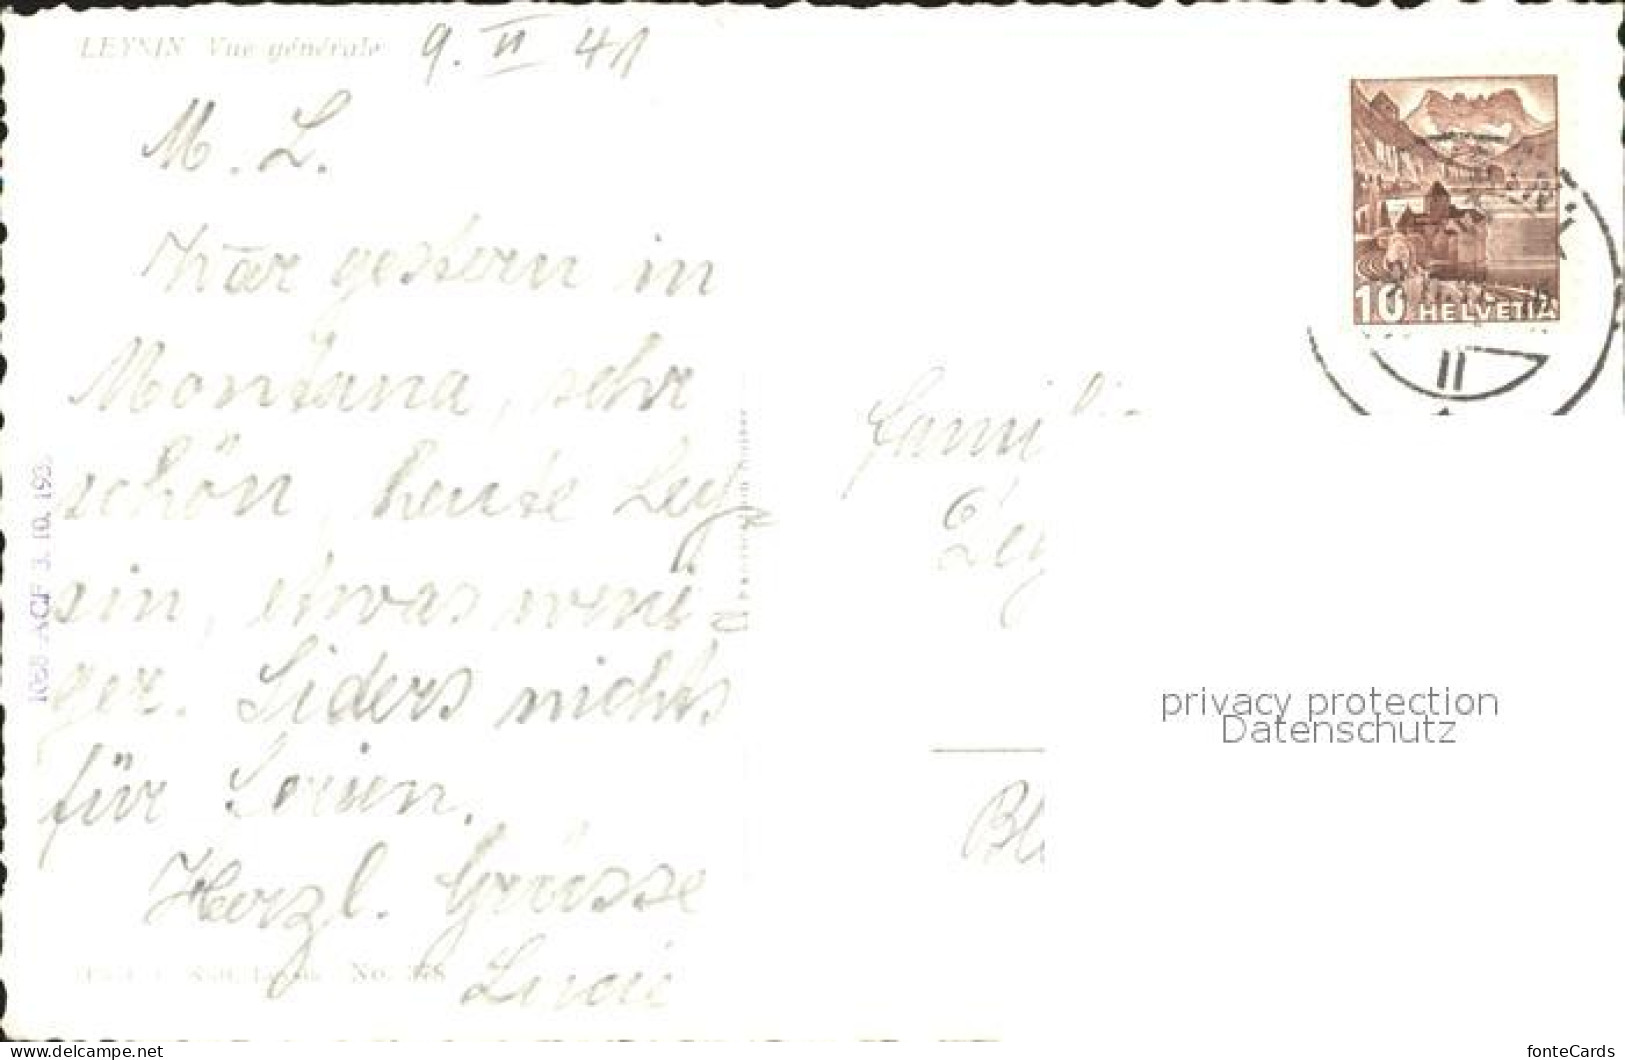 LEYSIN Vue générale
9. II 41
M. L.
War gestern in
Montana, sehr
schön, heute Ley-
sin, etwas weni-
ger. Liders nichts
für
Herzl. Grüsse
Lucie
No.
ACF 3. 10. 193
Famili
10 HELVETIA
II
privacy protection
Datenschutz
www.delcampe.net
fonteCards